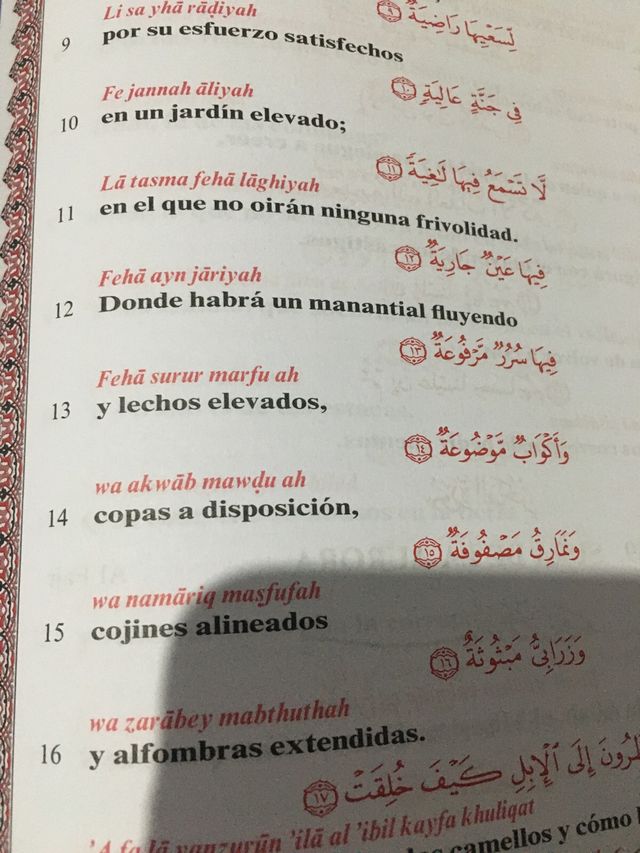 لِّسَعْيِهَا رَاضِيَةٌ ٩
Li sa yhā rāḍiyah
9 por su esfuerzo satisfechos
فِي جَنَّةٍ عَالِيَةٍ ١٠
Fe jannah āliyah
10 en un jardín elevado;
لَّا تَسْمَعُ فِيهَا لَٰغِيَةً ١١
Lā tasma fehā lāghiyah
11 en el que no oirán ninguna frivolidad.
فِيهَا عَيْنٌ جَارِيَةٌ ١٢
Fehā ayn jāriyah
12 Donde habrá un manantial fluyendo
فِيهَا سُرُرٌ مَّرْفُوعَةٌ ١٣
Fehā surur marfu ah
13 y lechos elevados,
وَأَكْوَابٌ مَّوْضُوعَةٌ ١٤
wa akwāb mawḍu ah
14 copas a disposición,
وَنَمَارِقُ مَصْفُوفَةٌ ١٥
wa namāriq maṣfufah
15 cojines alineados
وَزَرَابِيُّ مَبْثُوثَةٌ ١٦
wa zarābey mabthuthah
16 y alfombras extendidas.
إِلَى الْإِبِلِ كَيْفَ خُلِقَتْ ١٧
'A fa lā yanzurūn 'ilā al 'ibil kayfa khuliqat
camellos y cómo